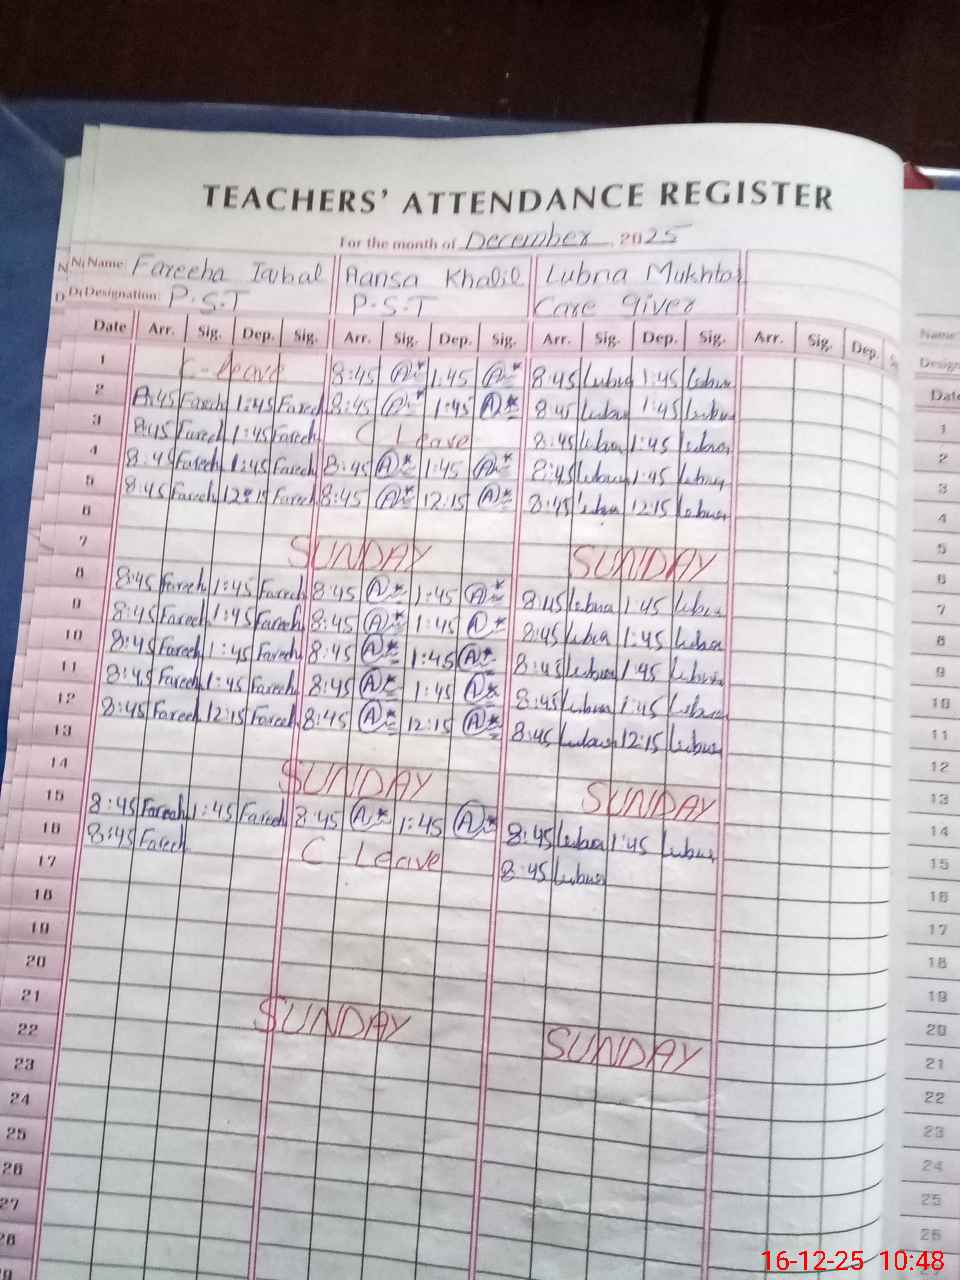 TEACHERS' ATTENDANCE REGISTER
For the month of December 2025
Name: Fareeha Iqbal Aansa Khalil Lubna Mukhtar
Designation: P.S.T P.S.T Care giver
Date Arr. Sig. Dep. Sig. Arr. Sig. Dep. Sig. Arr. Sig. Dep. Sig. Arr. Sig. Dep.
1 C-leave 8:45 A 1:45 A 8:45 Lubna 1:45 Lubna
2 8:45 Fareeh 1:45 Fareeh 8:45 A 1:45 A 8:45 Lubna 1:45 Lubna
3 8:45 Fareeh 1:45 Fareeh C Leave 8:45 Lubna 1:45 Lubna
4 8:45 Fareeh 1:45 Fareeh 8:45 A 1:45 A 8:45 Lubna 1:45 Lubna
5 8:45 Fareeh 12:15 Fareeh 8:45 A 12:15 A 8:45 Lubna 12:15 Lubna
6
7 SUNDAY SUNDAY
8 8:45 Fareeh 1:45 Fareeh 8:45 A 1:45 A 8:45 Lubna 1:45 Lubna
9 8:45 Fareeh 1:45 Fareeh 8:45 A 1:45 A 8:45 Lubna 1:45 Lubna
10 8:45 Fareeh 1:45 Fareeh 8:45 A 1:45 A 8:45 Lubna 1:45 Lubna
11 8:45 Fareeh 1:45 Fareeh 8:45 A 1:45 A 8:45 Lubna 1:45 Lubna
12 8:45 Fareeh 12:15 Fareeh 8:45 A 12:15 A 8:45 Lubna 12:15 Lubna
13
14 SUNDAY SUNDAY
15 8:45 Fareeh 1:45 Fareeh 8:45 A 1:45 A 8:45 Lubna 1:45 Lubna
16 8:45 Fareeh C Leave 8:45 Lubna
17
18
19
20
21 SUNDAY SUNDAY
22
23
24
25
26
27
28
Name
Date
1
2
3
4
5
6
7
8
9
10
11
12
13
14
15
16
17
18
19
20
21
22
23
24
25
26
16-12-25 10:48